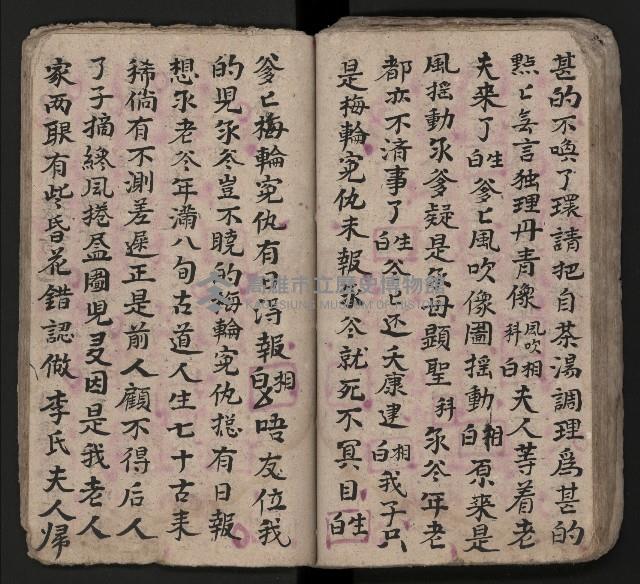 甚的不喚了環請把自茶湯調理為甚的
点〻無言独理丹青像 風吹科 相白 夫人等着老
夫來了 生白 爹〻風吹像圖搖動 相白 原來是
風搖動尔爹疑是尔母顕聖 科 尔爷年老
都亦不濟事了 生白 爷爷还天康建 相白 我子只
是梅輪寃仇未報爷就死不冥目 生白
爹〻梅輪寃仇有日得報 相白 唔友位我
的児尔爷豈不曉的梅輪寃仇捴有日報
想尔老爷年滿八旬古道人生七十古来
稀倘有不測差遲正是前人顧不得后人
了子摘終風捲盈圖児又因是我老人
家两眼有些昏花錯認做李氏夫人帰
高雄市立歷史博物館
KAOHSIUNG MUSEUM OF HISTORY